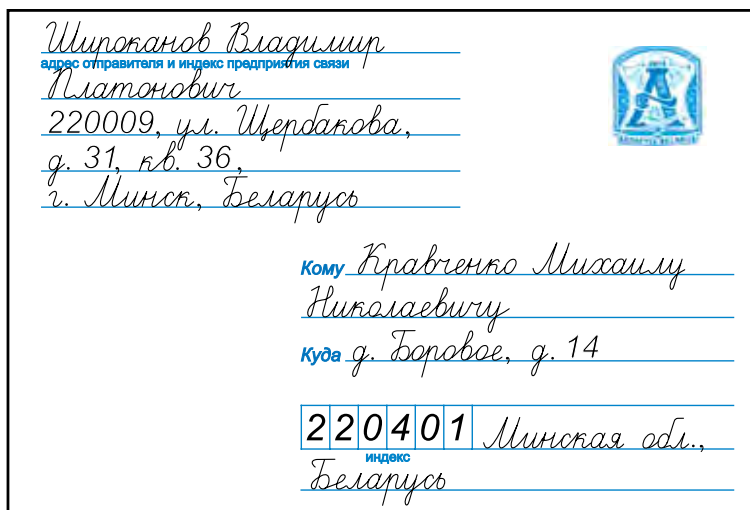 Широканов Владимир
адрес отправителя и индекс предприятия связи
Платонович
220009, ул. Щербакова,
д. 31, кв. 36,
г. Минск, Беларусь
Кому Кравченко Михаилу
Николаевичу
Куда д. Боровое, д. 14
220401 Минская обл.,
индекс
Беларусь